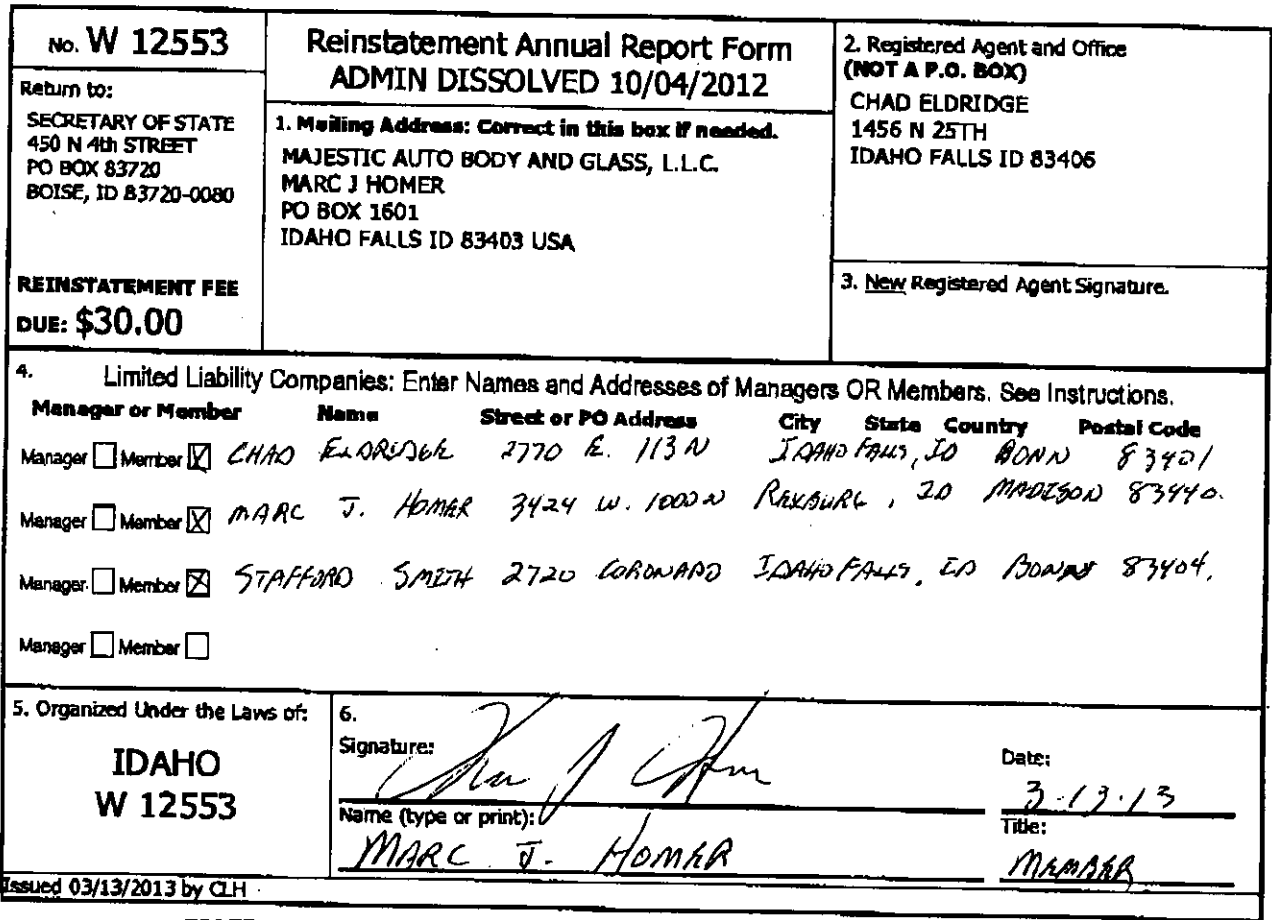 No. W 12553
Return to:
SECRETARY OF STATE
450 N 4th STREET
PO BOX 83720
BOISE, ID 83720-0080
REINSTATEMENT FEE
DUE: $30.00
Reinstatement Annual Report Form
ADMIN DISSOLVED 10/04/2012
1. Mailing Address: Correct in this box if needed.
MAJESTIC AUTO BODY AND GLASS, L.L.C.
MARC J HOMER
PO BOX 1601
IDAHO FALLS ID 83403 USA
2. Registered Agent and Office
(NOT A P.O. BOX)
CHAD ELDRIDGE
1456 N 25TH
IDAHO FALLS ID 83406
3. New Registered Agent Signature.
4. Limited Liability Companies: Enter Names and Addresses of Managers OR Members. See Instructions.
Manager or Member Name Street or PO Address City State Country Postal Code
Manager Member X CHAD ELDRIDGE 2770 E. 113 N IDAHO FALLS, ID BONN 83401
Manager Member X MARC J. HOMER 3424 W. 1000 N REXBURG, ID MADISON 83440.
Manager Member X STAFFORD SMITH 2720 CORONADO IDAHO FALLS, ID 83404.
Manager Member
5. Organized Under the Laws of:
IDAHO
W 12553
6.
Signature:
Date:
3.13.13
Name (type or print):
MARC J. HOMER
Title:
MEMBER
Issued 03/13/2013 by CLH